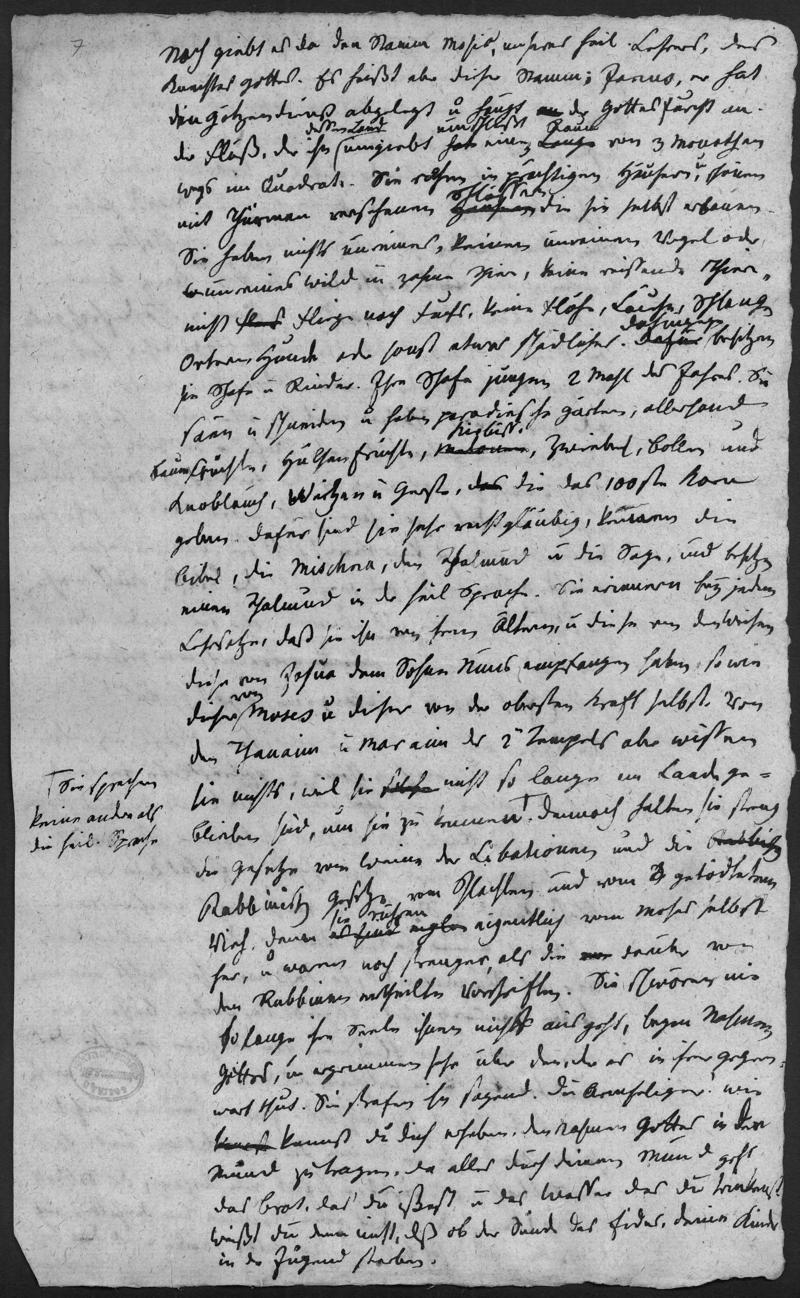 7
Noch giebt es da den Stamm Mosis, unseres heil. Lehrers, des
Knechtes Gottes. Es heißt aber dieser Stamm; Janus, er hat
den Götzendienst abgelegt u hängt der Gottesfurcht an.
der Fluß, der ihr umgiebt
dessen Land umschließt Raum von 3 Monathen
wegs im Quadrat. Sie wohnen in prächtigen Häusern u schönen
mit Thürmen versehenen Schlössern die sie selbst erbauen.
Sie haben nichts unreines, keinen unreinen Vogel oder
unreines Wild u zahme Thier, keine reißende Thiere,
nicht Fliege noch Fuchs, keine Flöhe, Läuse, Schlange
Ottern Hunde oder sonst etwas schädliches. dahingegen besitzen
sie Schafe u Rinder. Ihre Schafe jungen 2 Mahl des Jahres. Sie
säen u schneiden u haben paradiesische Gärten, allerhand
Baumfrüchte, Hülsenfrüchte, Kürbisse, Zwiebel, Bollen und
Knoblauch, Weitzen u Gerste, die das 100ste Korn
geben. dafür sind sie sehr rechtgläubig, kennen die
Bibel, die Mischna, den Thalmud u die Sage, und besitzen
einen Thalmud in der heil Sprache. Sie erinnern bey jedem
Lehrsatze, daß sie ihn von ihren Ältern, u diese von den Weisen
diese von Josua dem Sohne Nuns empfangen haben, so wie
dieser von Moses u dieser von der obersten Kraft selbst. Von
den Thanaim u Maraim des 2t Tempels aber wissen
sie nichts, weil sie nicht so lange im Lande ge=
blieben sind, um sie zu kennen. Dennoch halten sie streng
Sie sprechen
keine andere als
die heil. Sprache
die Gesetze vom Weine der Libationen und die
Rabbinisch Gesetze vom Schlachten und vom getödteten
Vieh. denn sie rühren eigentlich vom Moses selbst
her, u waren noch strenger, als die darüber von
den Rabbinen ertheilten Vorschriften. Sie schwören nie
so lange ihre Seele ihnen nicht ausgeht, beym Nahmen
Gottes, u ergrimmen sehr über den, der es in ihrer Gegen=
wart thut. Sie strafen ihn sagend. Du Armseliger! wie
kannst du dich erheben, den Nahmen Gottes in dem
Mund zu tragen, da alles durch deinen Mund geht
das Brot, das du issest u das Wasser das du trinkest
weißt du denn nicht, daß ob der Sünde des Eides, deine Kinder
in der Jugend sterben.